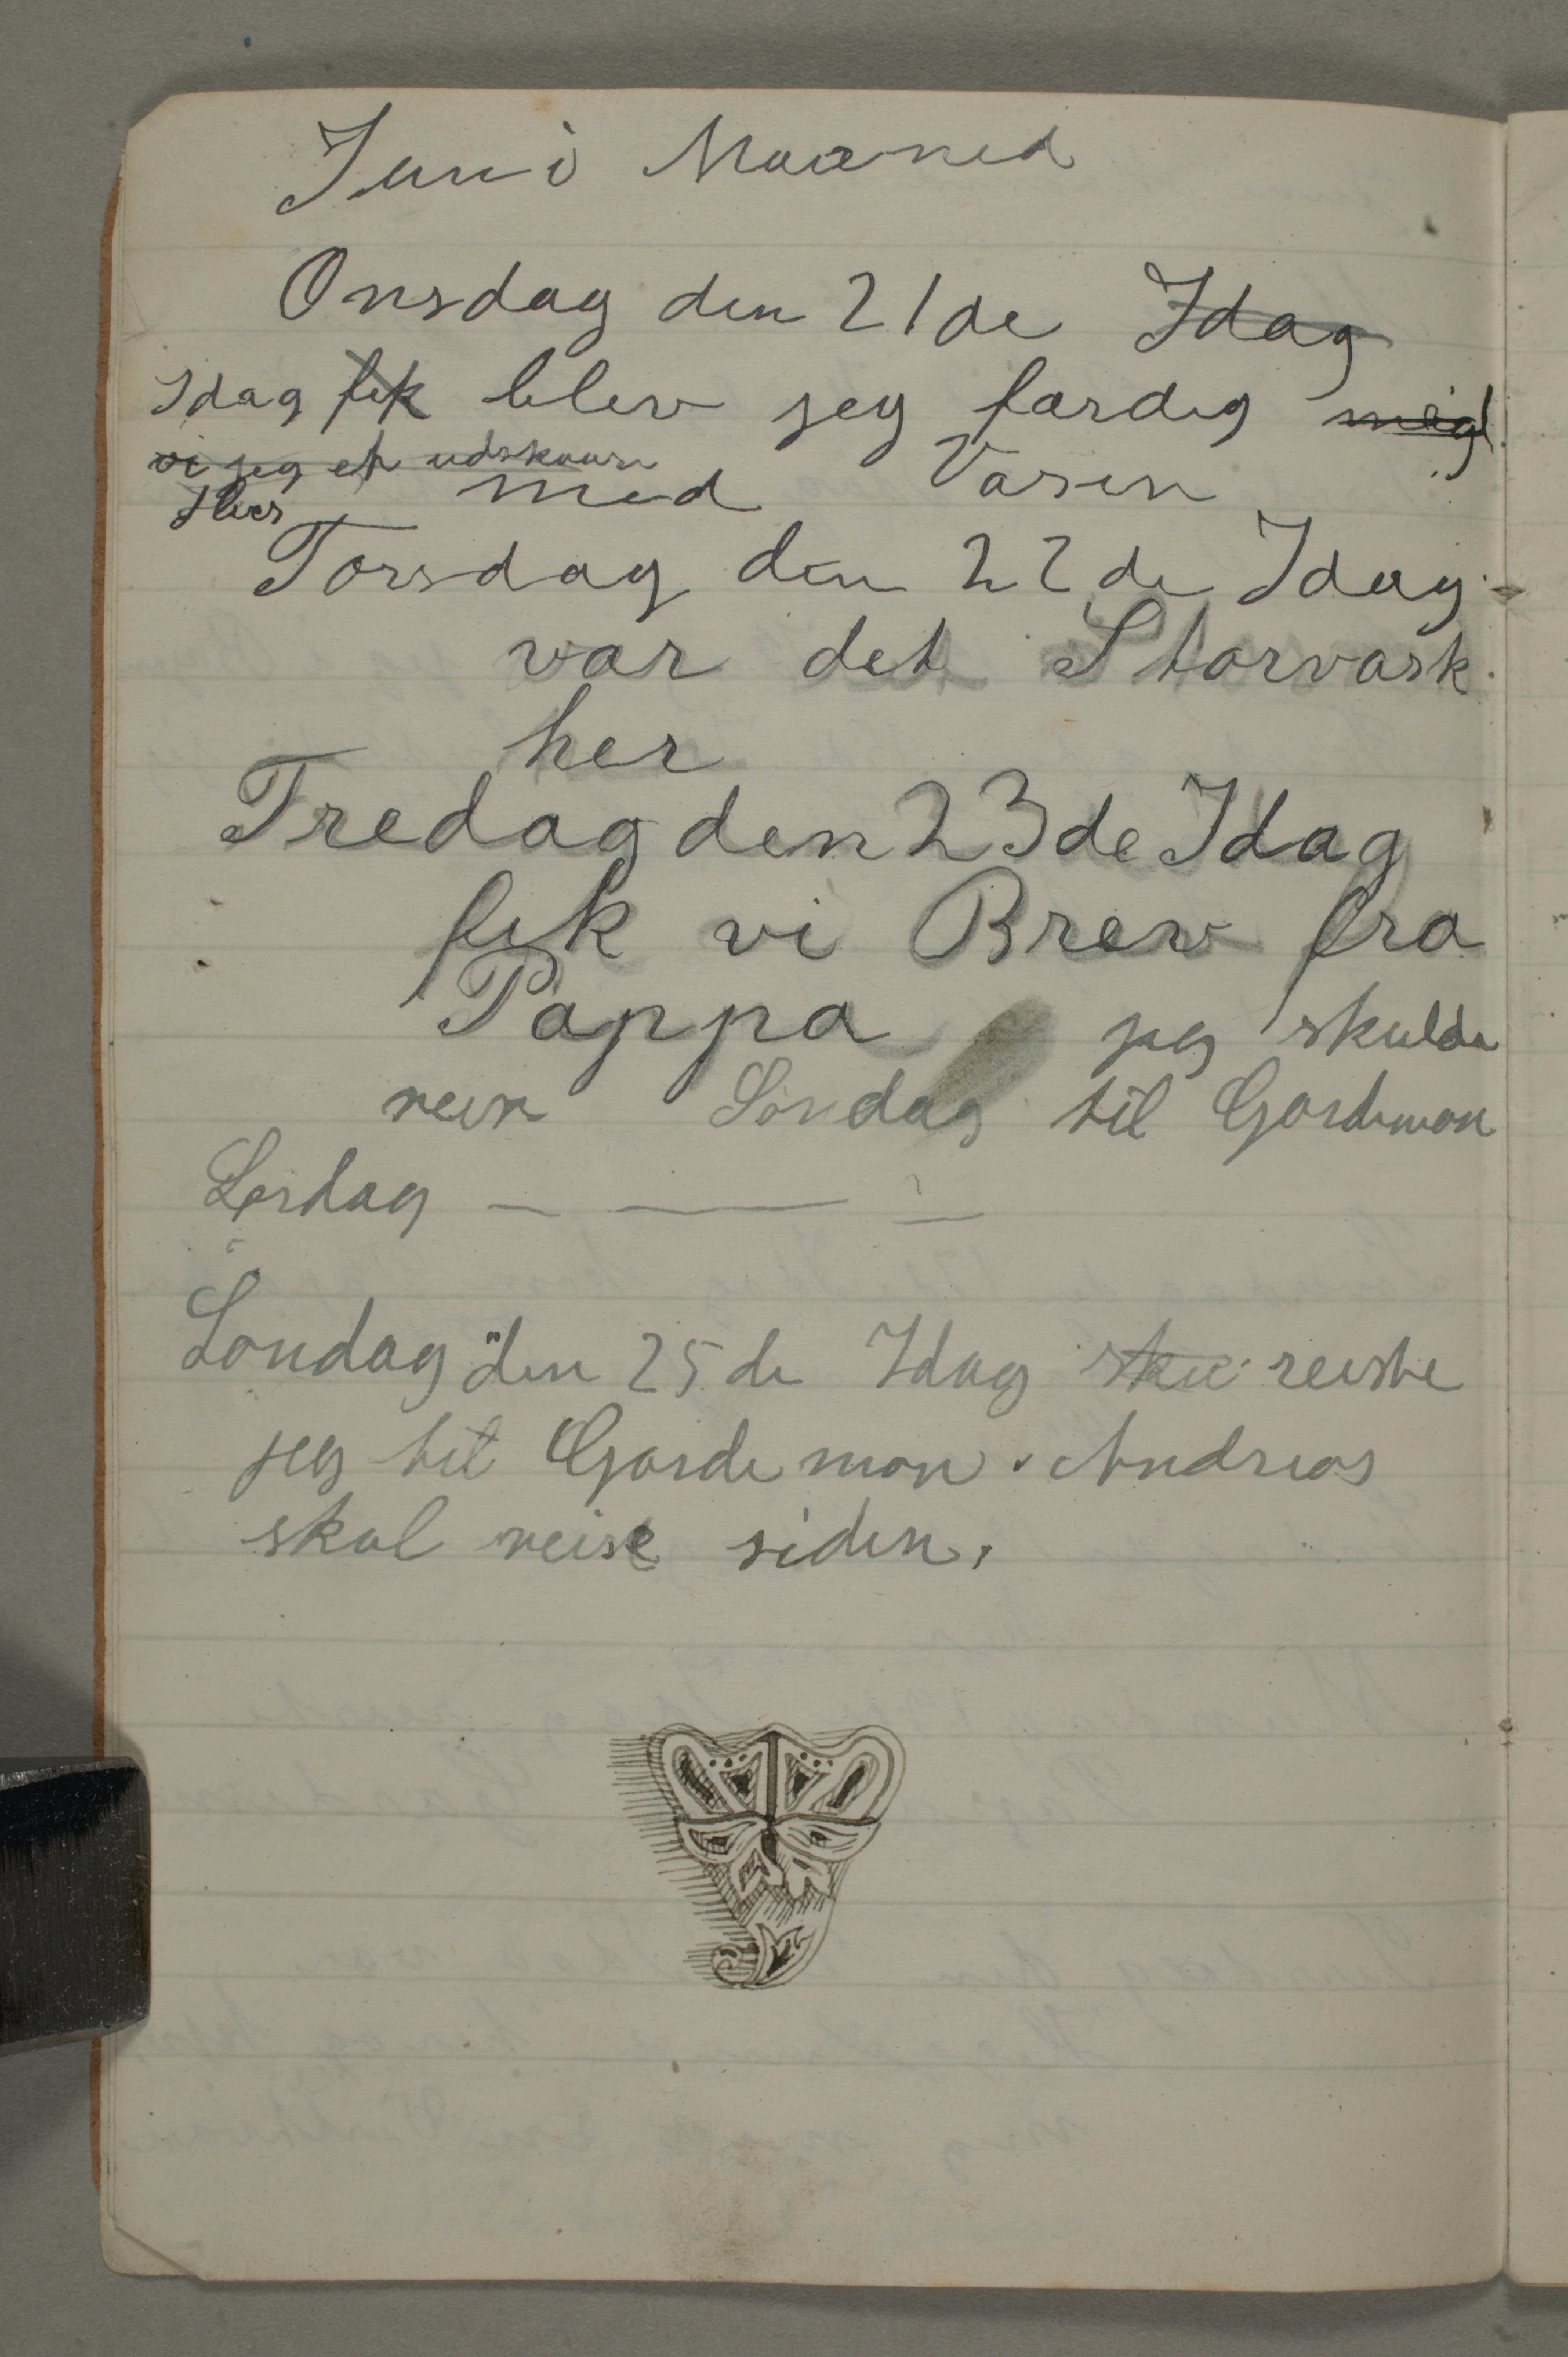 Juni Maaned
Onsdag den 21de Idag
Idag fik blev jeg færdig
vi jeg et udskaare
med Vasen
Torsdag den 22de Idag
var det Storvask
her
Fredag den 23de Idag
fik vi Brev fra
Pappa jeg skulde
reise Søndag til Gardemon
Lørdag — — —
Søndag den 25de Idag sku reiste
jeg til Gardemon. Andreas
skal reise siden.